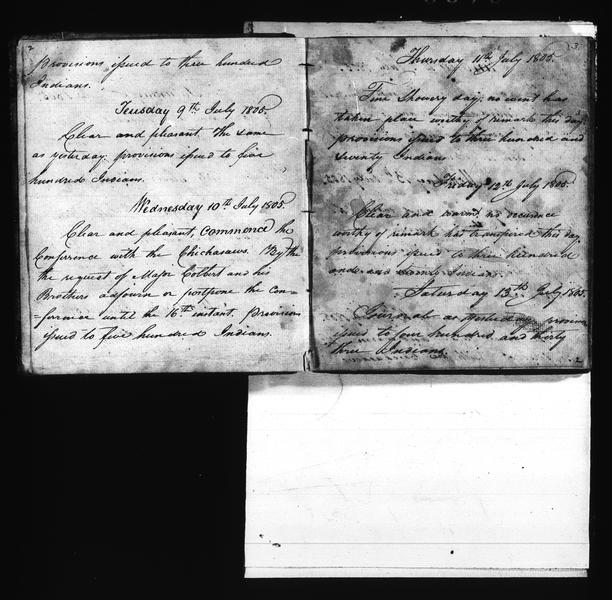 2
provisions issued to three hundred
Indians.
Teusday 9th July 1805.
Clear and pleasant, the same
as yesterday. provisions issued to five
hundred Indians.
Wednesday 10th July 1805
Clear and pleasant, Commence the
Conference with the Chickasaws. By the
the request of Major Colbert and his
Brothers adjourn or postpone the Con=
=ference until the 16th instant. provisions
issued to five hundred Indians.
3
Thursday 11th July 1805.
Fine Showery day. no event has
taken place worthy of remark this day.
provisions issued to three hundred and
seventy Indians
Friday 12th July 1805.
Clear and warm, no
worthy of remark has transpired this day
provisions issued to three hundred
and Indians
Saturday 13th July 1805.
as yesterday
issued to four hundred and thirty
three Indians.